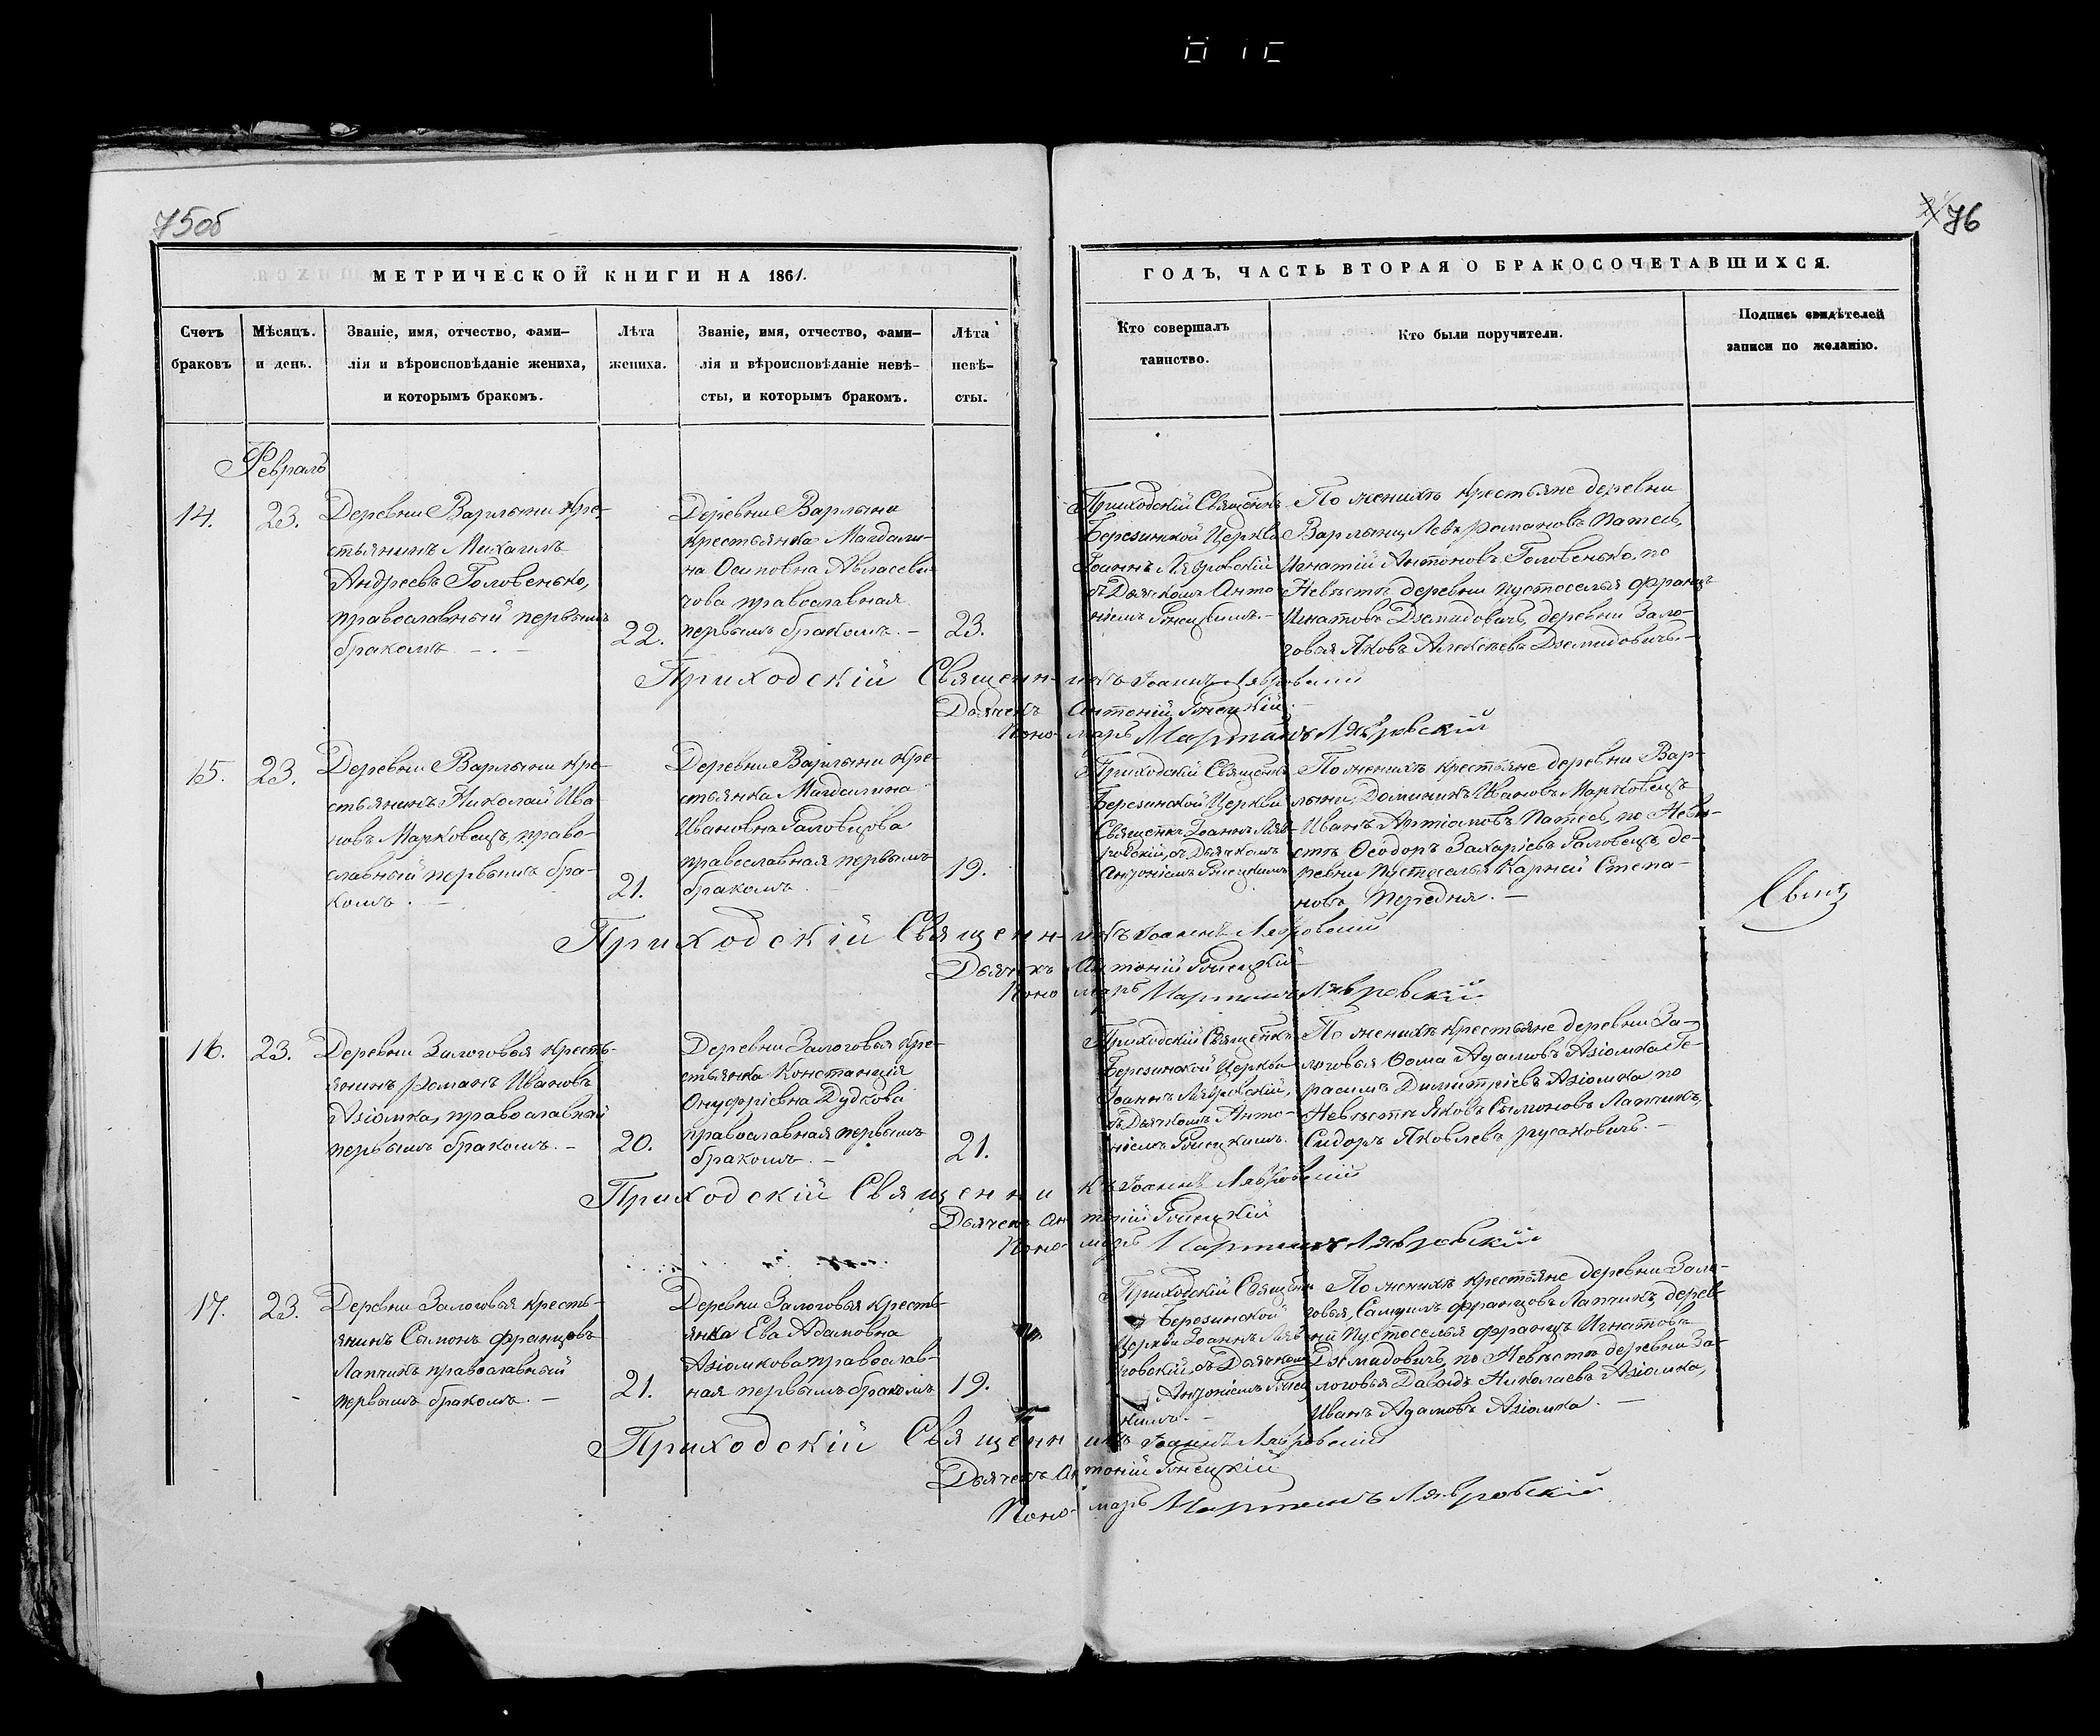 75об
76
МЕТРИЧЕСКОЙ КНИГИ НА 1861.
ГОДЪ, ЧАСТЬ ВТОРАЯ О БРАКОСОЧЕТАВШИХСЯ.
Счетъ браковъ
Мѣсяцъ. и день.
Званіе, имя, отчество, фами-
лія и вѣроисповѣданіе жениха,
и которымъ бракомъ.
Лѣта жениха.
Званіе, имя, отчество, фами-
лія и вѣроисповѣданіе невѣ-
сты, и которымъ бракомъ.
Лѣта невѣ-
сты.
Кто совершалъ
таинство.
Кто были поручители.
Подпись свидѣтелей
записи по желанію.
Февраль
14.
23.
Деревни Варлыни кре-
стьянинъ Михаилъ
Андреевъ Головенько,
православный первымъ
бракомъ. —
22.
Деревни Варлыни
крестьянка Магдали-
на Осиповна Авласеви-
чова православная
первымъ бракомъ. —
23.
Приходскій Священикъ
Березинкой Церкви
Іоаннъ Лявровскій
съ Дьячкомъ Анто-
ніемъ
По женихѣ крестьяне деревни
Варлыни Левъ Романовъ Патей,
Игнатій Антоновъ Головенько. по
Невѣстѣ деревни Пустоселья Францъ
Игнатовъ Дземидовичъ, деревни Зало-
говья Яковъ Алексѣевъ Дземидовичъ. —
Приходскій Священникъ Іоаннъ Лявровскій
Дьячекъ Антоній
Пономарь Мартинъ Лявровскій
15.
23.
Деревни Варлыни кре-
стьянинъ Николай Ива-
новъ Марковецъ, право-
славный первымъ бра-
комъ. —
21.
Деревни Варлыни кре-
стьянка Магдалина
Ивановна Раловцова
православная первымъ
бракомъ.
19.
Приходскій Священикъ
Березинской Церкви
Священикъ Іоаннъ Ляв-
ровскій, съ Дьячкомъ
Антоніемъ
По женихѣ крестьяне деревни Вар-
лыни, Доминикъ Ивановъ Марковецъ
Иванъ Артіомовъ Патей, по Невѣ-
стѣ Ѳеодоръ Захаріевъ Раловецъ, де-
ревни Пустоселья Карней Степа-
новъ Передня. —
Приходскій Священникъ Іоаннъ Лявровскій
Дьячекъ Антоній
Пономарь Мартинъ Лявровскій
16.
23.
Деревни Залоговья кресть-
янинъ Романъ Ивановъ
Азіомка, православный
первымъ бракомъ. —
20.
Деревни Залоговья кре-
стьянка Констанція
Онуфріевна Дудкова
православная первымъ
бракомъ. —
21.
Приходскій Священикъ
Березинской Церкви
Іоаннъ Лявровскій,
съ Дьячкомъ Анто-
ніемъ
По женихѣ крестьяне деревни За-
логовья Ѳома Адамовъ Азіомка Ге-
расимъ Димитріевъ Азіомка, по
Невѣстѣ Яковъ Сымоновъ Лапчикъ,
Сидоръ Яковлевъ Русаковичъ. —
Приходскій Священникъ Іоаннъ Лявровскій
Дьячекъ Антоній
Пономарь Мартинъ Лявровскій
17.
23.
Деревни Залоговья кресть-
янинъ Сымонъ Францовъ
Лапчикъ православный
первымъ бракомъ. —
21.
Деревни Залоговья кресть-
янка Ева Адамовна
Азіомкова православ-
ная первымъ бракомъ
19.
Приходскій
Березинской
Церкви Іоаннъ Ляв-
ровскій, съ Дьячкомъ
Антоніемъ
По женихѣ крестьяне деревни Зало-
говья, Самуилъ Францовъ Лапчикъ, дерев-
ни Пустоселья Францъ Игнатовъ
Дземидовичъ, по Невѣстѣ деревни За-
логовья Давыдъ Николаевъ Азіомка,
Иванъ Адамовъ Азіомка. —
Приходскій Священникъ Іоаннъ Лявровскій
Дьячекъ Антоній
Пономарь Мартинъ Лявровскій